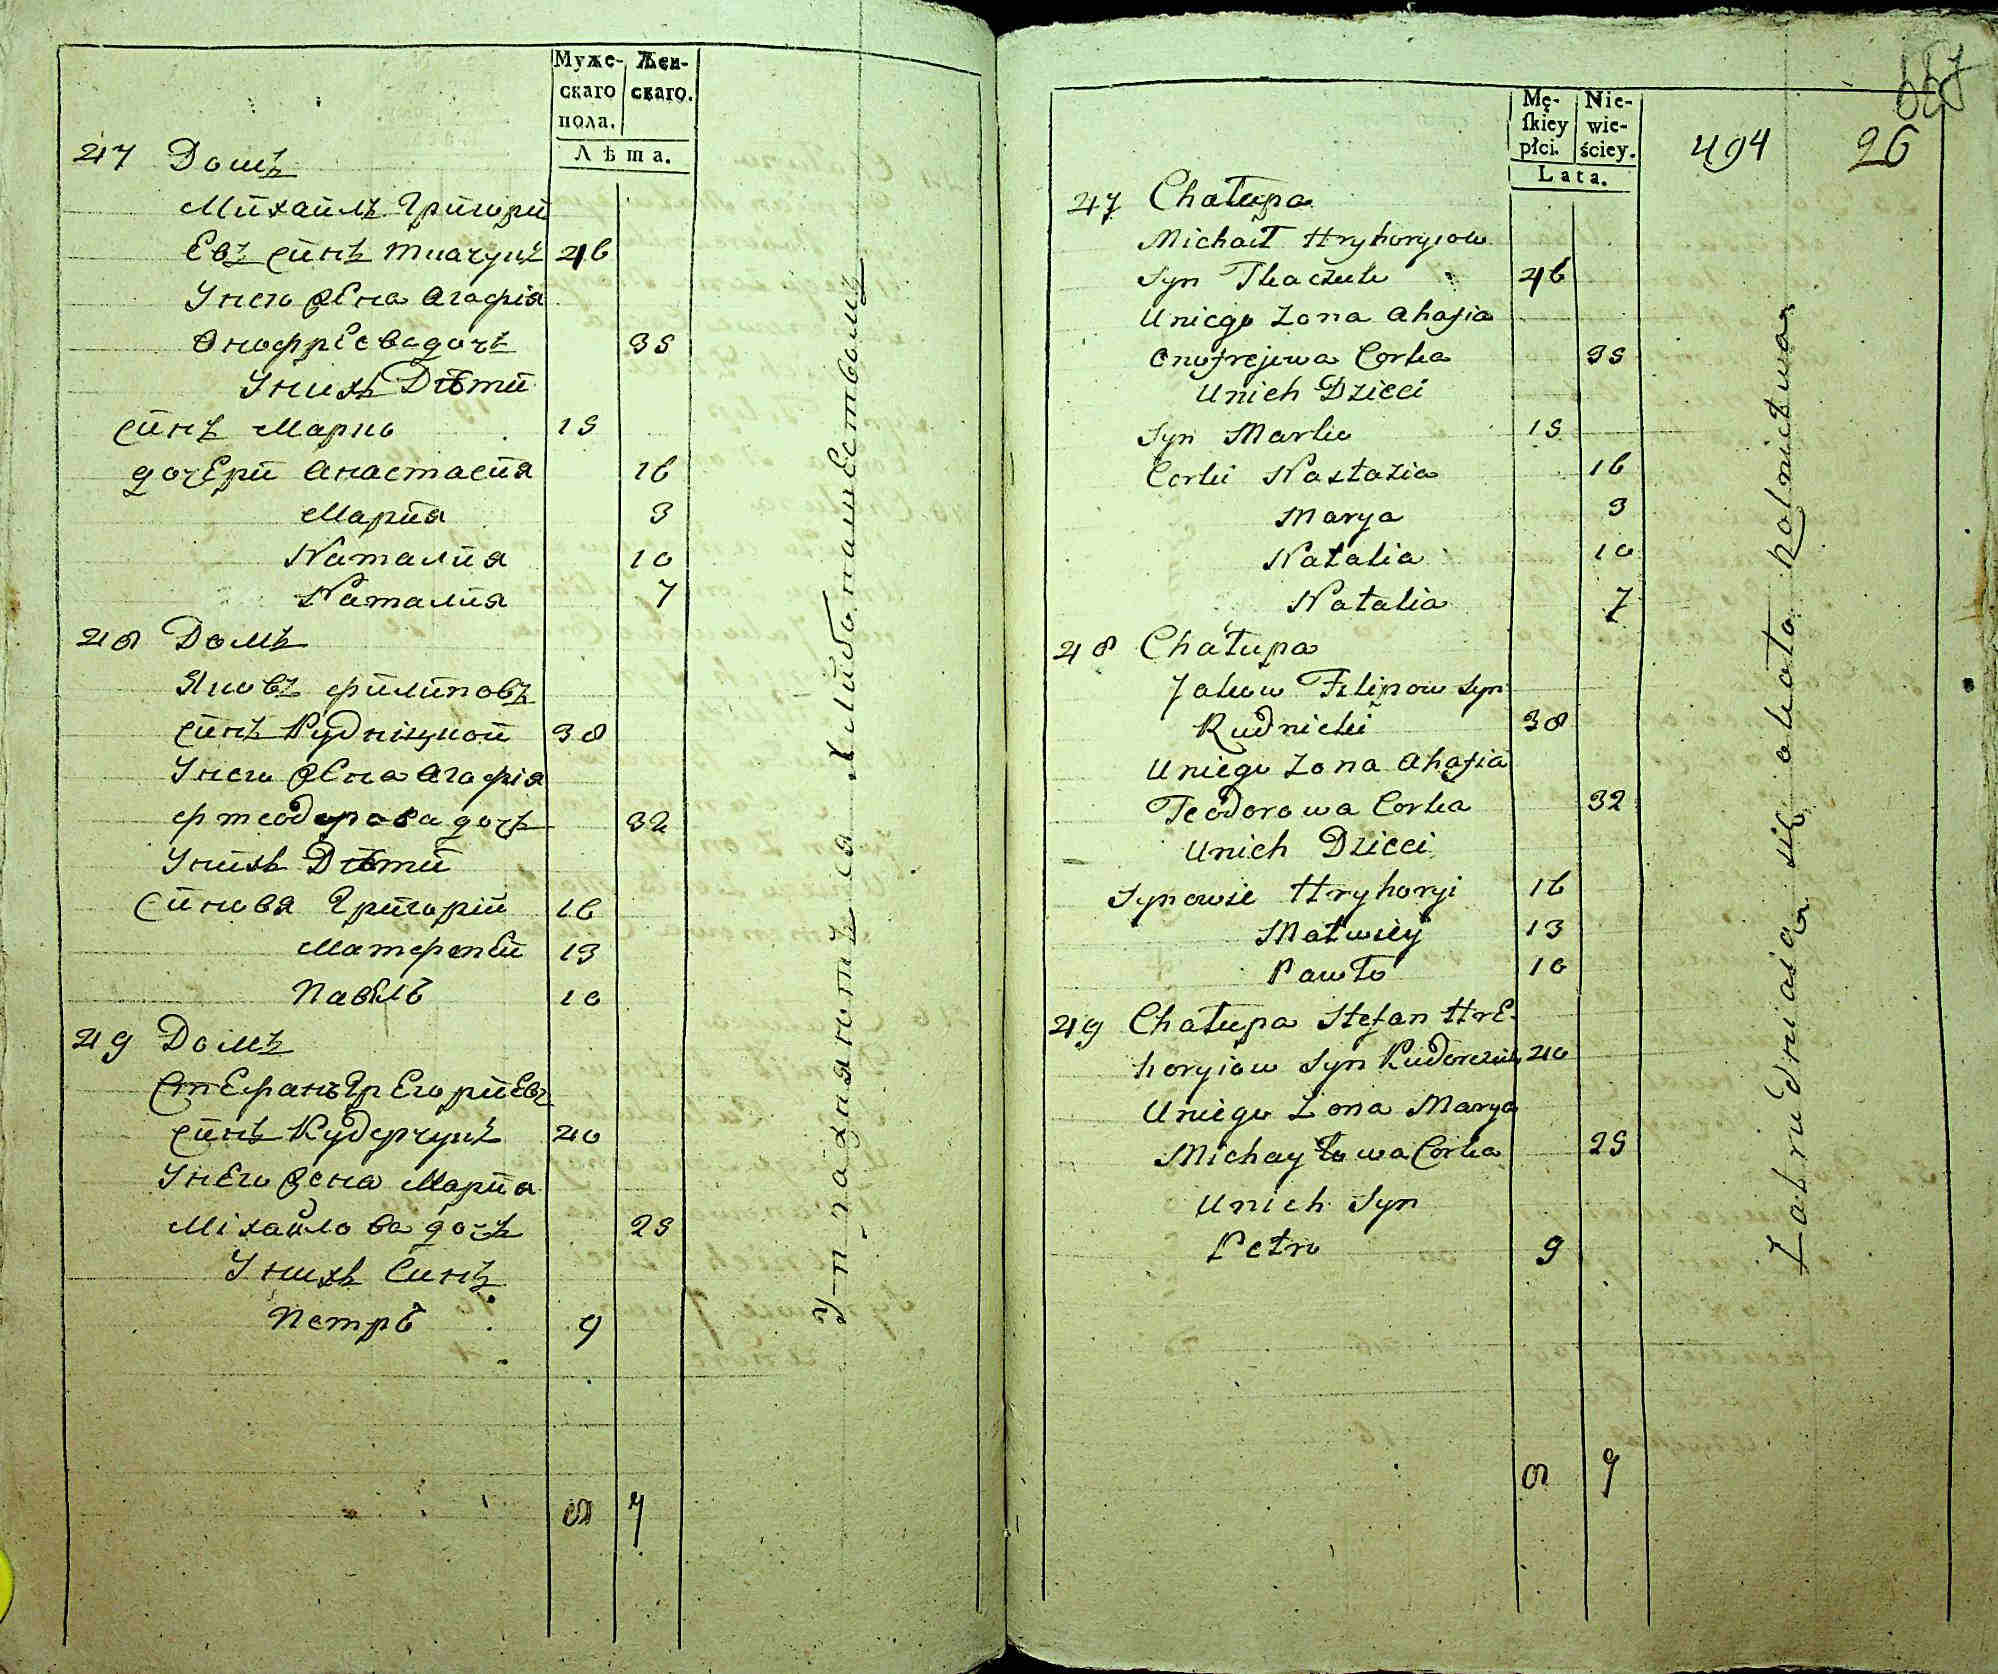 Муже- Жен-
скаго скаго.
пола.
Лѣта.
47 Домъ
Михаилъ Григори
Евъ синъ Ткачукъ 46
У него жена Агафія
Онофріева дочъ 35
У нихъ Дѣти
синъ Марко 15
дочери Анастасия 16
Мария 3
Наталия 10
Наталия 7
48 Домъ
Яковъ филиповъ
синъ Рудніцкой 38
У него жена Агафія
фтеодорова дочъ 32
У нихъ Дѣти
синовя Григорій 16
Матфеѣй 13
Павѣлъ 10
49 Домъ
СтЕфанъ ГрЕгориЕвъ
синъ Кудерчукъ 40
У нЕго жена Мария
Міхайлова дочъ 25
У нихъ Синъ
Петръ 9
8 7
Упражняются хлибопашествомъ
Mę- Nie-
ſkiey wie-
płci. ściey.
Lata.
687
494 26
47 Chałupa
Michaił Hryhoryiow
Syn Tkaczuk 46
Uniego Zona Ahafia
Onufrejewa Corka 35
Unich Dzieci
Syn Marko 15
Corki Nastazia 16
Marya 3
Natalia 10
Natalia 7
48 Chałupa
Jakow Filipow Syn
Rudnicki 38
Uniego Zona Ahafia
Teodorowa Corka 32
Unich Dzieci
Synowie Hryhoryi 16
Matwiey 13
Pawło 10
49 Chałupa Stefan HrE-
horyiow Syn Kuderczuk 40
Uniego Zona Marya
Michayłowa Corka 25
Unich Syn
Petro 9
8 7
Zatrudniaią się około rolnictwa